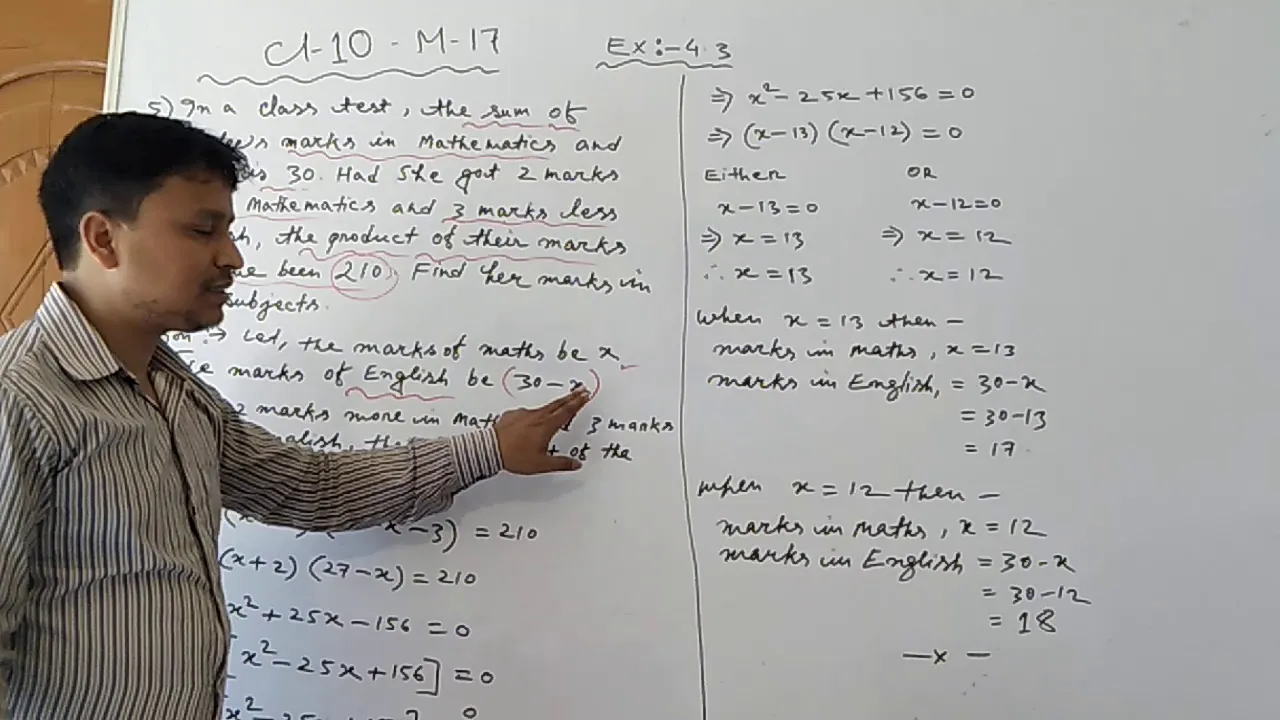 Cl-10 - M-17
Ex:-4.3
5) In a class test, the sum of
marks in Mathematics and
is 30. Had She got 2 marks
Mathematics and 3 marks less
the product of their marks
been 210. Find her marks in
subjects.
Let, the marks of maths be x
marks of English be (30-x)
2 marks more in 3 marks
English, of the
x-3) = 210
(x+2) (27-x) = 210
x² + 25x - 156 = 0
x² - 25x + 156] = 0
⇒ x² - 25x + 156 = 0
⇒ (x-13) (x-12) = 0
Either OR
x-13=0 x-12=0
⇒ x = 13 ⇒ x = 12
∴ x = 13 ∴ x = 12
When x = 13 then -
marks in maths, x = 13
marks in English, = 30-x
= 30-13
= 17
When x = 12 then -
marks in maths, x = 12
marks in English = 30-x
= 30-12
= 18
—x—